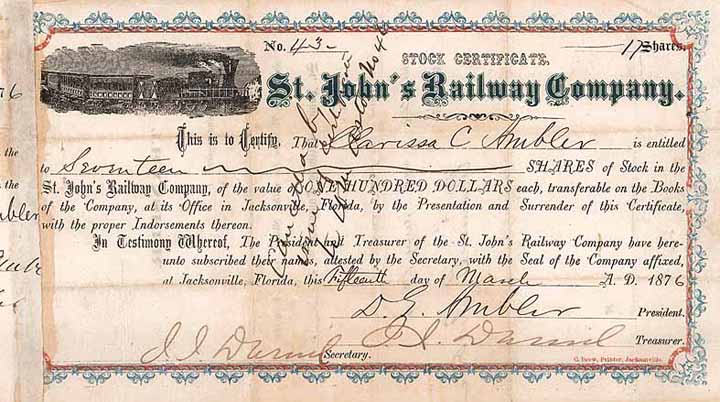 No. 43- 17 Shares.
STOCK CERTIFICATE.
St. John's Railway Company.
This is to Certify, That Clarissa C. Ambler is entitled
to Seventeen SHARES of Stock in the
St. John's Railway Company, of the value of ONE HUNDRED DOLLARS each, transferable on the Books
of the Company, at its Office in Jacksonville, Florida, by the Presentation and Surrender of this Certificate,
with the proper Indorsements thereon.
In Testimony Whereof, The President and Treasurer of the St. John's Railway Company have here-
unto subscribed their names, attested by the Secretary, with the Seal of the Company affixed,
at Jacksonville, Florida, this Fifteenth day of March A. D. 1876
D. G. Ambler President.
J. J. Daniel Treasurer.
J. J. Daniel Secretary.
C. Drew, Printer, Jacksonville.
Cancelled by
issue of
No 4
876
the
the
mbler